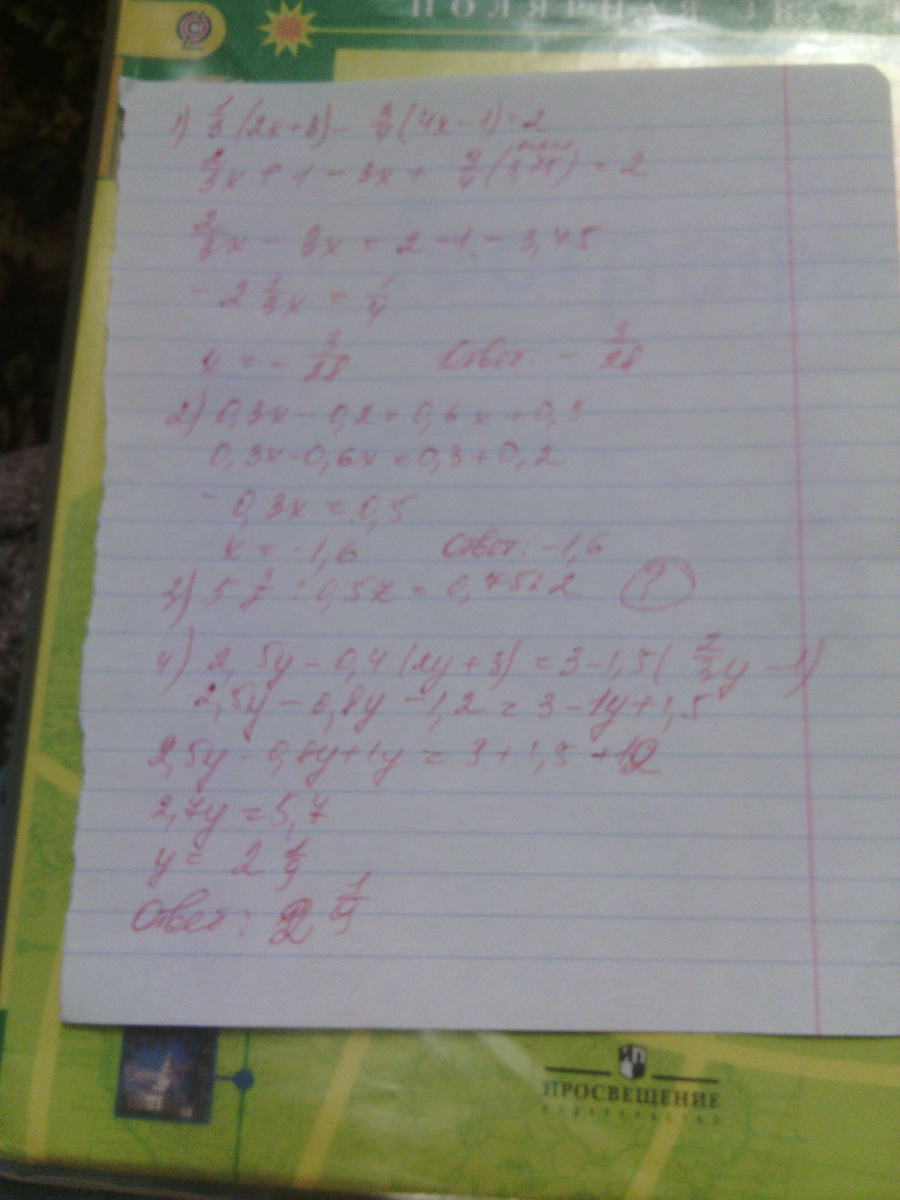 ПОЛЯРНАЯ
1) 1/3 (2x+3) - 3/4 (4x-1) = 2
2/3x + 1 - 3x + 3/4 (0,75) = 2
2/3x - 3x = 2 - 1 -
- 2 1/3x = 1/4
x = - 3/28 Ответ: - 3/28
2) 0,3x - 0,2 = 0,6x + 0,3
0,3x - 0,6x = 0,3 + 0,2
- 0,3x = 0,5
x = -1,6 Ответ: -1,6
3) 5 : 0,5x = 0,75:2 ?
4) 2,5y - 0,4 (2y+3) = 3 - 1,5 ( 2/3y - 1)
2,5y - 0,8y - 1,2 = 3 - 1y + 1,5
2,5y - 0,8y + 1y = 3 + 1,5 +
2,7y = 5,7
y = 2 1/9
Ответ: 2 1/9
ПРОСВЕЩЕНИЕ
ИЗДАТЕЛЬСТВО